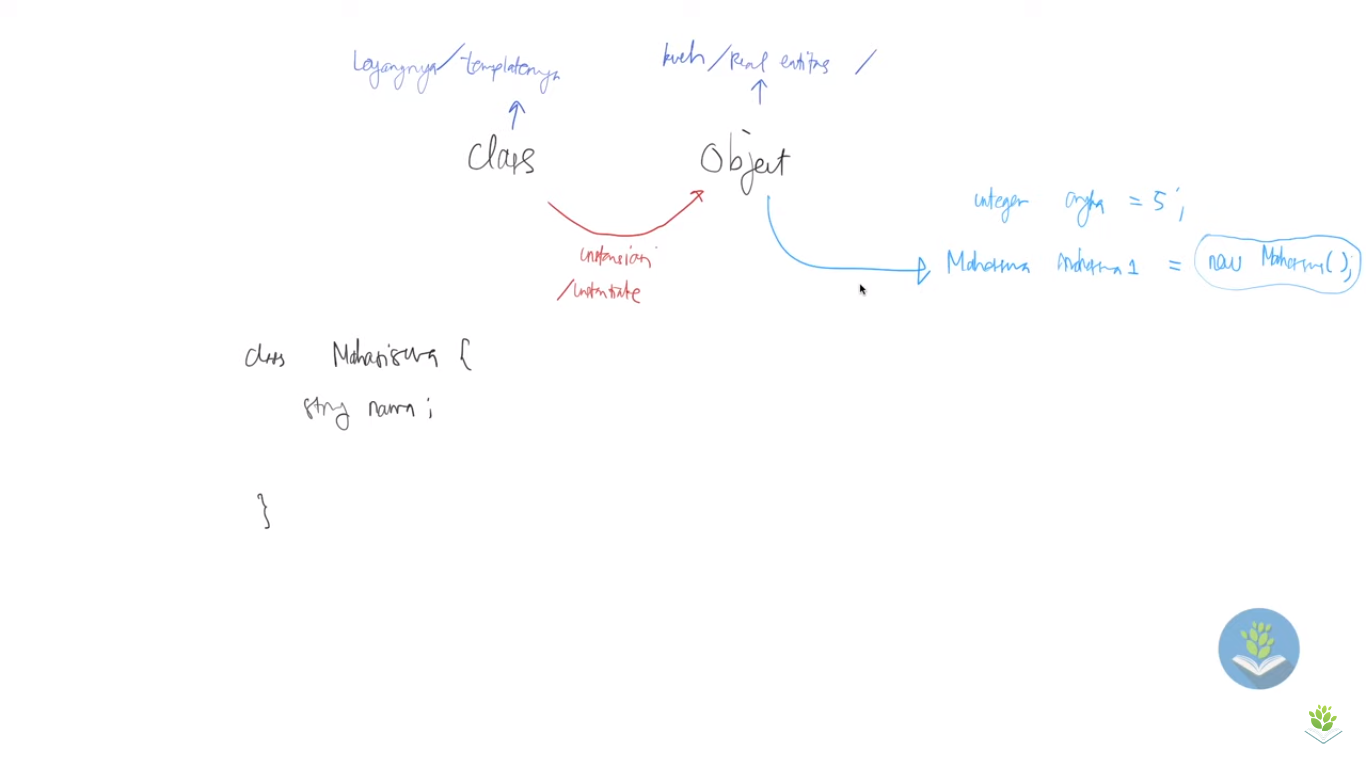 Loyangnya / templatenya
kueh / real entitas /
Class
Object
integer angka = 5;
instansiasi
/instantiate
Mahasiswa mahasiswa1 = new Mahasiswa();
class Mahasiswa {
string nama;
}